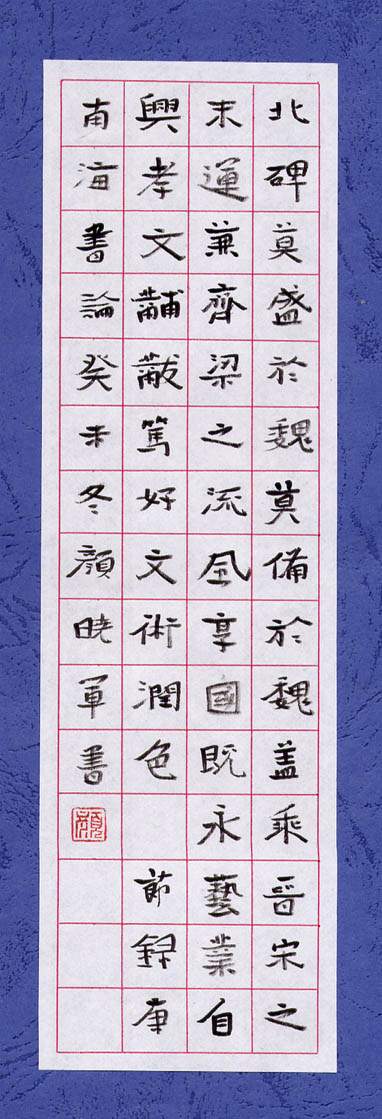 北碑莫盛於魏莫備於魏盖乘晉宋之
末運兼齊梁之流風享國既永藝業自
興孝文黼黻篤好文術潤色 節錄康
南海書論癸未冬顏曉軍書
顏